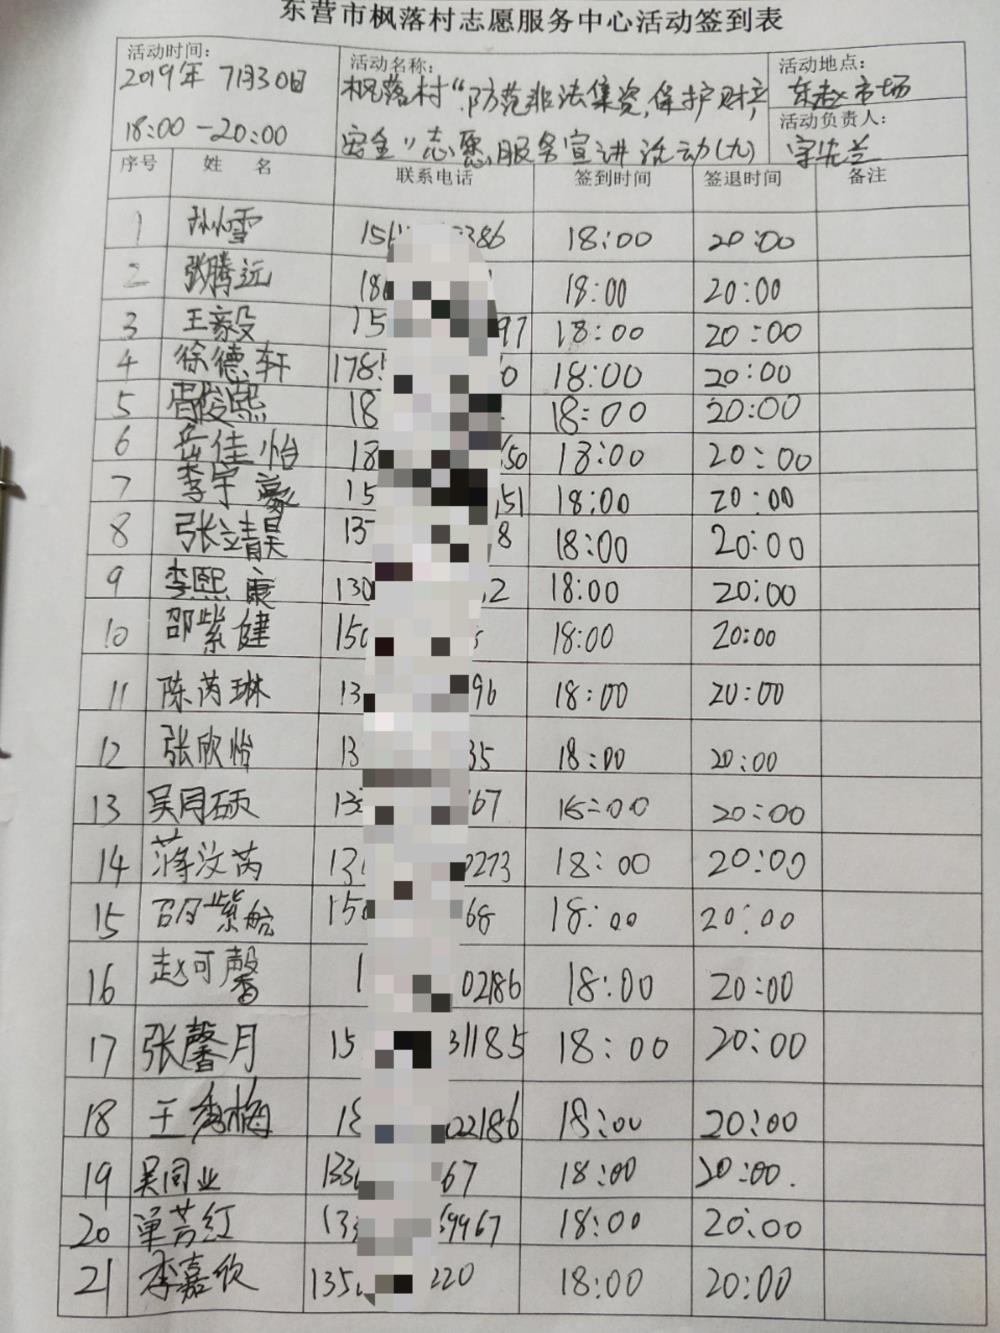 东营市枫落村志愿服务中心活动签到表
活动时间: 活动名称: 活动地点:
2019年 7月30日 枫落村“防范非法集资,保护财产 东赵市场
18:00-20:00 安全”志愿服务宣讲活动(九) 活动负责人:
序号 姓 名 联系电话 签到时间 签退时间 备注
1 孙小雪 386 18:00 20:00
2 张腾远 18 18:00 20:00
3 王毅 15 97 18:00 20:00
4 徐德轩 178 0 18:00 20:00
5 俊熙 18 18:00 20:00
6 岳佳怡 18 50 18:00 20:00
7 李宇豪 15 51 18:00 20:00
8 张立靖昊 13 8 18:00 20:00
9 李熙康 130 2 18:00 20:00
10 邵紫健 150 18:00 20:00
11 陈芮琳 13 96 18:00 20:00
12 张欣怡 13 35 18:00 20:00
13 吴同硕 13 67 18:00 20:00
14 蒋汶芮 13 0273 18:00 20:00
15 邵紫航 150 68 18:00 20:00
16 赵可馨 1 02186 18:00 20:00
17 张馨月 15 31185 18:00 20:00
18 王秀梅 1 02186 18:00 20:00
19 吴同业 133 67 18:00 20:00.
20 单芳红 133 9967 18:00 20:00
21 李嘉欣 135 220 18:00 20:00